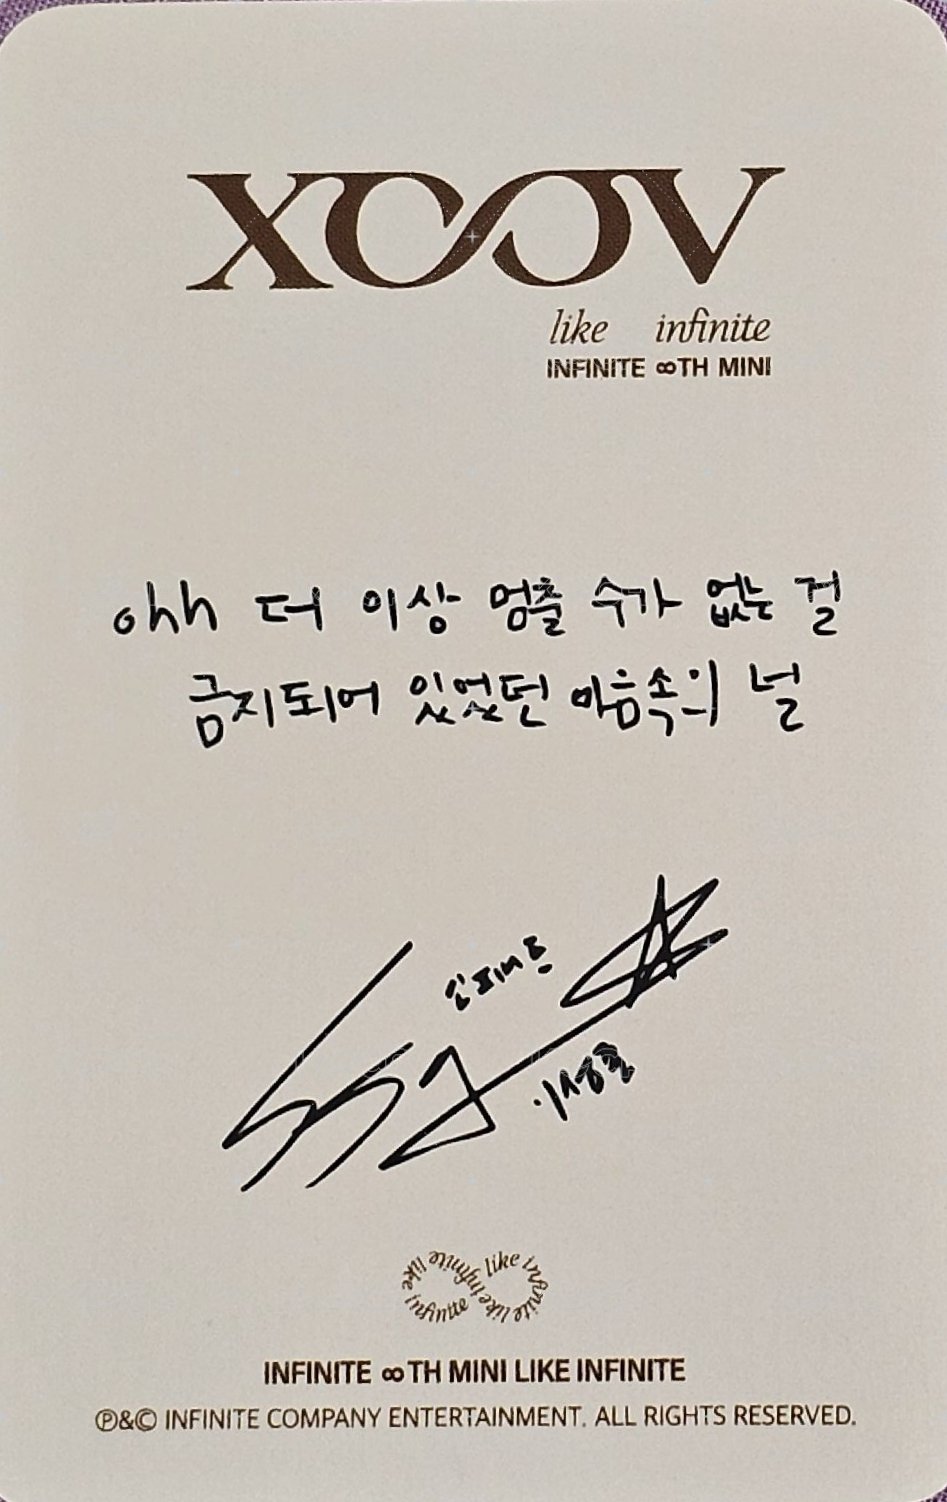 XOOV
like infinite
INFINITE ∞TH MINI
ohh 더 이상 멈출 수가 없는 걸
금지되어 있었던 마음속의 널
인피니트
이성종
like infinite like infinite like infinite
INFINITE ∞TH MINI LIKE INFINITE
℗&© INFINITE COMPANY ENTERTAINMENT. ALL RIGHTS RESERVED.